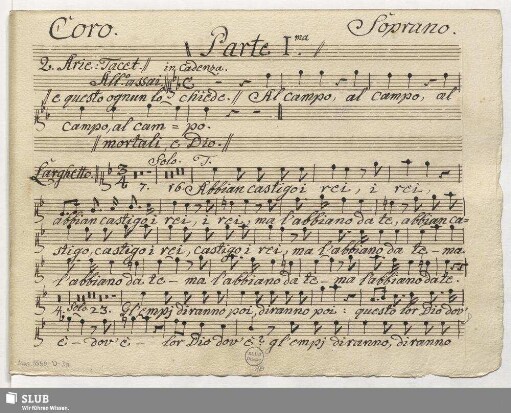 Coro. Soprano.
Parte I.ma
2. Arie: Tacet. // in Cadenza.
All.o assai
// e questo ognun lo chiede. // Al campo, al campo, al
campo, al cam = po.
// mortali, e Dio. //
Larghetto. Solo. T.
7. 16. Abbian castigo i rei, i rei,
abbian castigo i rei, i rei, ma l'abbiano da te, abbian ca-
stigo, castigo i rei, castigo i rei, ma l'abbiano da te - ma
l'abbiano da te - ma l'abbiano da te - ma l'abbiano da te.
4. Solo 23. gl'empj diranno poi, diranno poi: questo lor Dio dov'
è - dov'è - lor Dio dov'è? gl'empj diranno, diranno
SLUB
Wir führen Wissen.